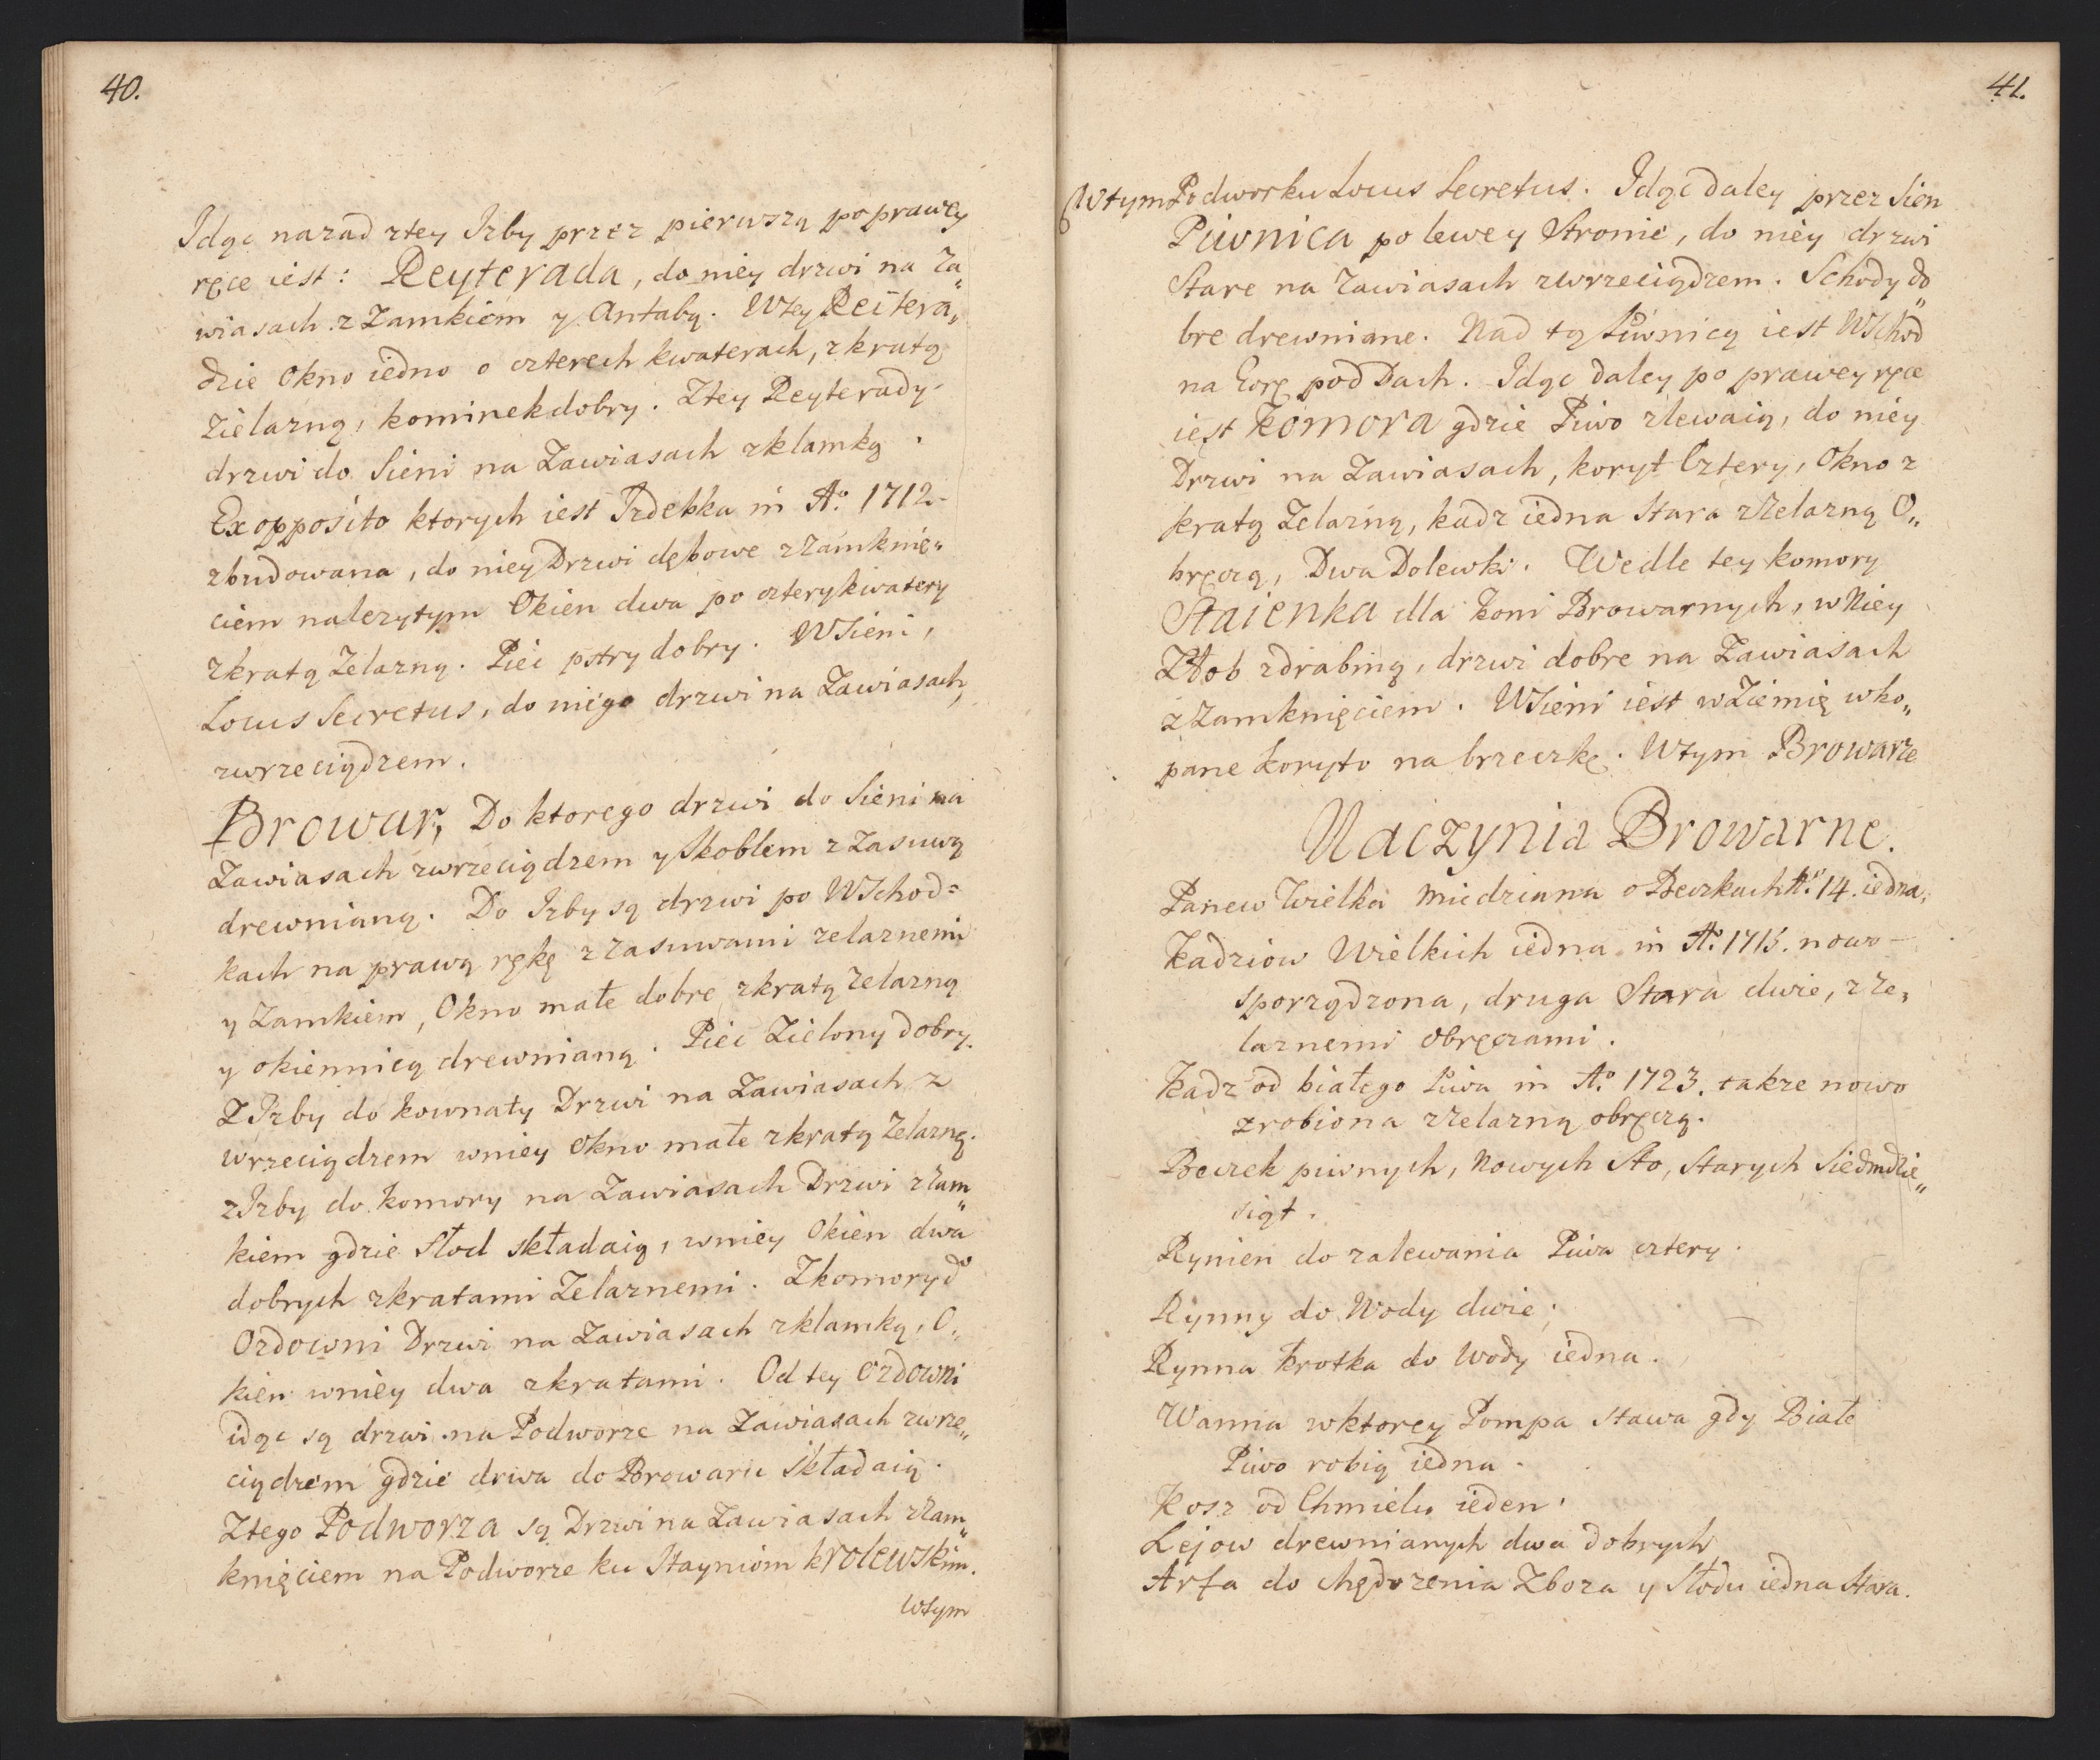 40.
Idąc nazad z tey Izby przez pierwszą po prawey
ręce iest: Reyterada, do niey drzwi na Za„
wiasach z Zamkiem y Antabą. W tey Reitera„
dzie Okno iedno o czterech kwaterach, z kratą
Zielazną, kominek dobry. Z tey Reyterady
drzwi do Sieni na Zawiasach z klamką.
Ex opposito ktorych iest Izdebka in Aº. 1712
zbudowana, do niey Drzwi dębowe z Zamknię„
ciem nalezytym Okien dwa po cztery kwatery
z kratą Zelazną. Piec pstry dobry. W Sieni,
Locus Secretus, do niego drzwi na Zawiasach,
z wrzeciądzem.
Browar, Do ktorego drzwi do Sieni na
Zawiasach z wrzeciądzem y Skoblem z Zasuwą
drewnianą. Do Izby są drzwi po WSchod=
kach na prawą rękę z Zasuwami zelaznemi
y Zamkiem, Okno małe dobre z kratą zelazną
y okiennicą drewnianą. Piec Zielony dobry.
Z Izby do kownaty Drzwi na Zawiasach z
wrzeciądzem w niey Okno małe z kratą Zelazną.
z Izby do komory na Zawiasach Drzwi z Zam„
kiem gdzie Słod składaią, w niey Okien dwa
dobrych z kratami Zelaznemi. Z komory do
Ozdowni Drzwi na Zawiasach z klamką, O„
kien w niey dwa z kratami. Od tey Ozdowni
idąc są drzwi na Podworze na Zawiasach z wrze„
ciądzem gdzie drwa do Browaru Składaią.
Z tego Podworza są Drzwi na Zawiasach z Zam„
knięciem na Podworze ku Stayniom krolewskim.
W tym
41.
W tym Podworku Locus Secretus. Idąc daley przez Sien
Piwnica po lewey Stronie, do niey drzwi
Stare na Zawiasach z wrzeciądzem. Schody do„
bre drewniane. Nad tą Piwnicą iest WSchod
na Gorę pod Dach. Idąc daley po prawey ręce
iest komora gdzie Piwo zlewaią, do niey
Drzwi na Zawiasach, koryt Cztery, Okno z
kratą Zelazną, kadz iedna Stara z Zelazną O„
bręczą, Dwa Dolewki. Wedle tey komory
Staienka dla koni Browarnych, w Niey
Złob z drabiną, drzwi dobre na Zawiasach
z Zamknięciem. W Sieni iest w Ziemię wko„
pane koryto na brzeczkę. W tym Browarze
Naczynia Browarne.
Panew Wielka miedziana o Beczkach Nº. 14. iedna.
Kadziow Wielkich iedna in Aº. 1715. nowo
sporządzona, druga Stara dwie, z Ze„
laznemi obręczami.
Kadz od białego Piwa in Aº. 1723. takze nowo
zrobiona z Zelazną obręczą.
Beczek piwnych, Nowych Sto, Starych Siedmdzie„
siąt.
Rynien do zalewania Piwa cztery.
Rynny do Wody dwie.
Rynna krotka do Wody iedna.
Wanna w ktorey Pompa stawa gdy Białe
Piwo robią iedna.
Kosz od Chmielu ieden.
Lejow drewnianych dwa dobrych
Arfa do chędozenia Zboza y Słodu iedna Stara.